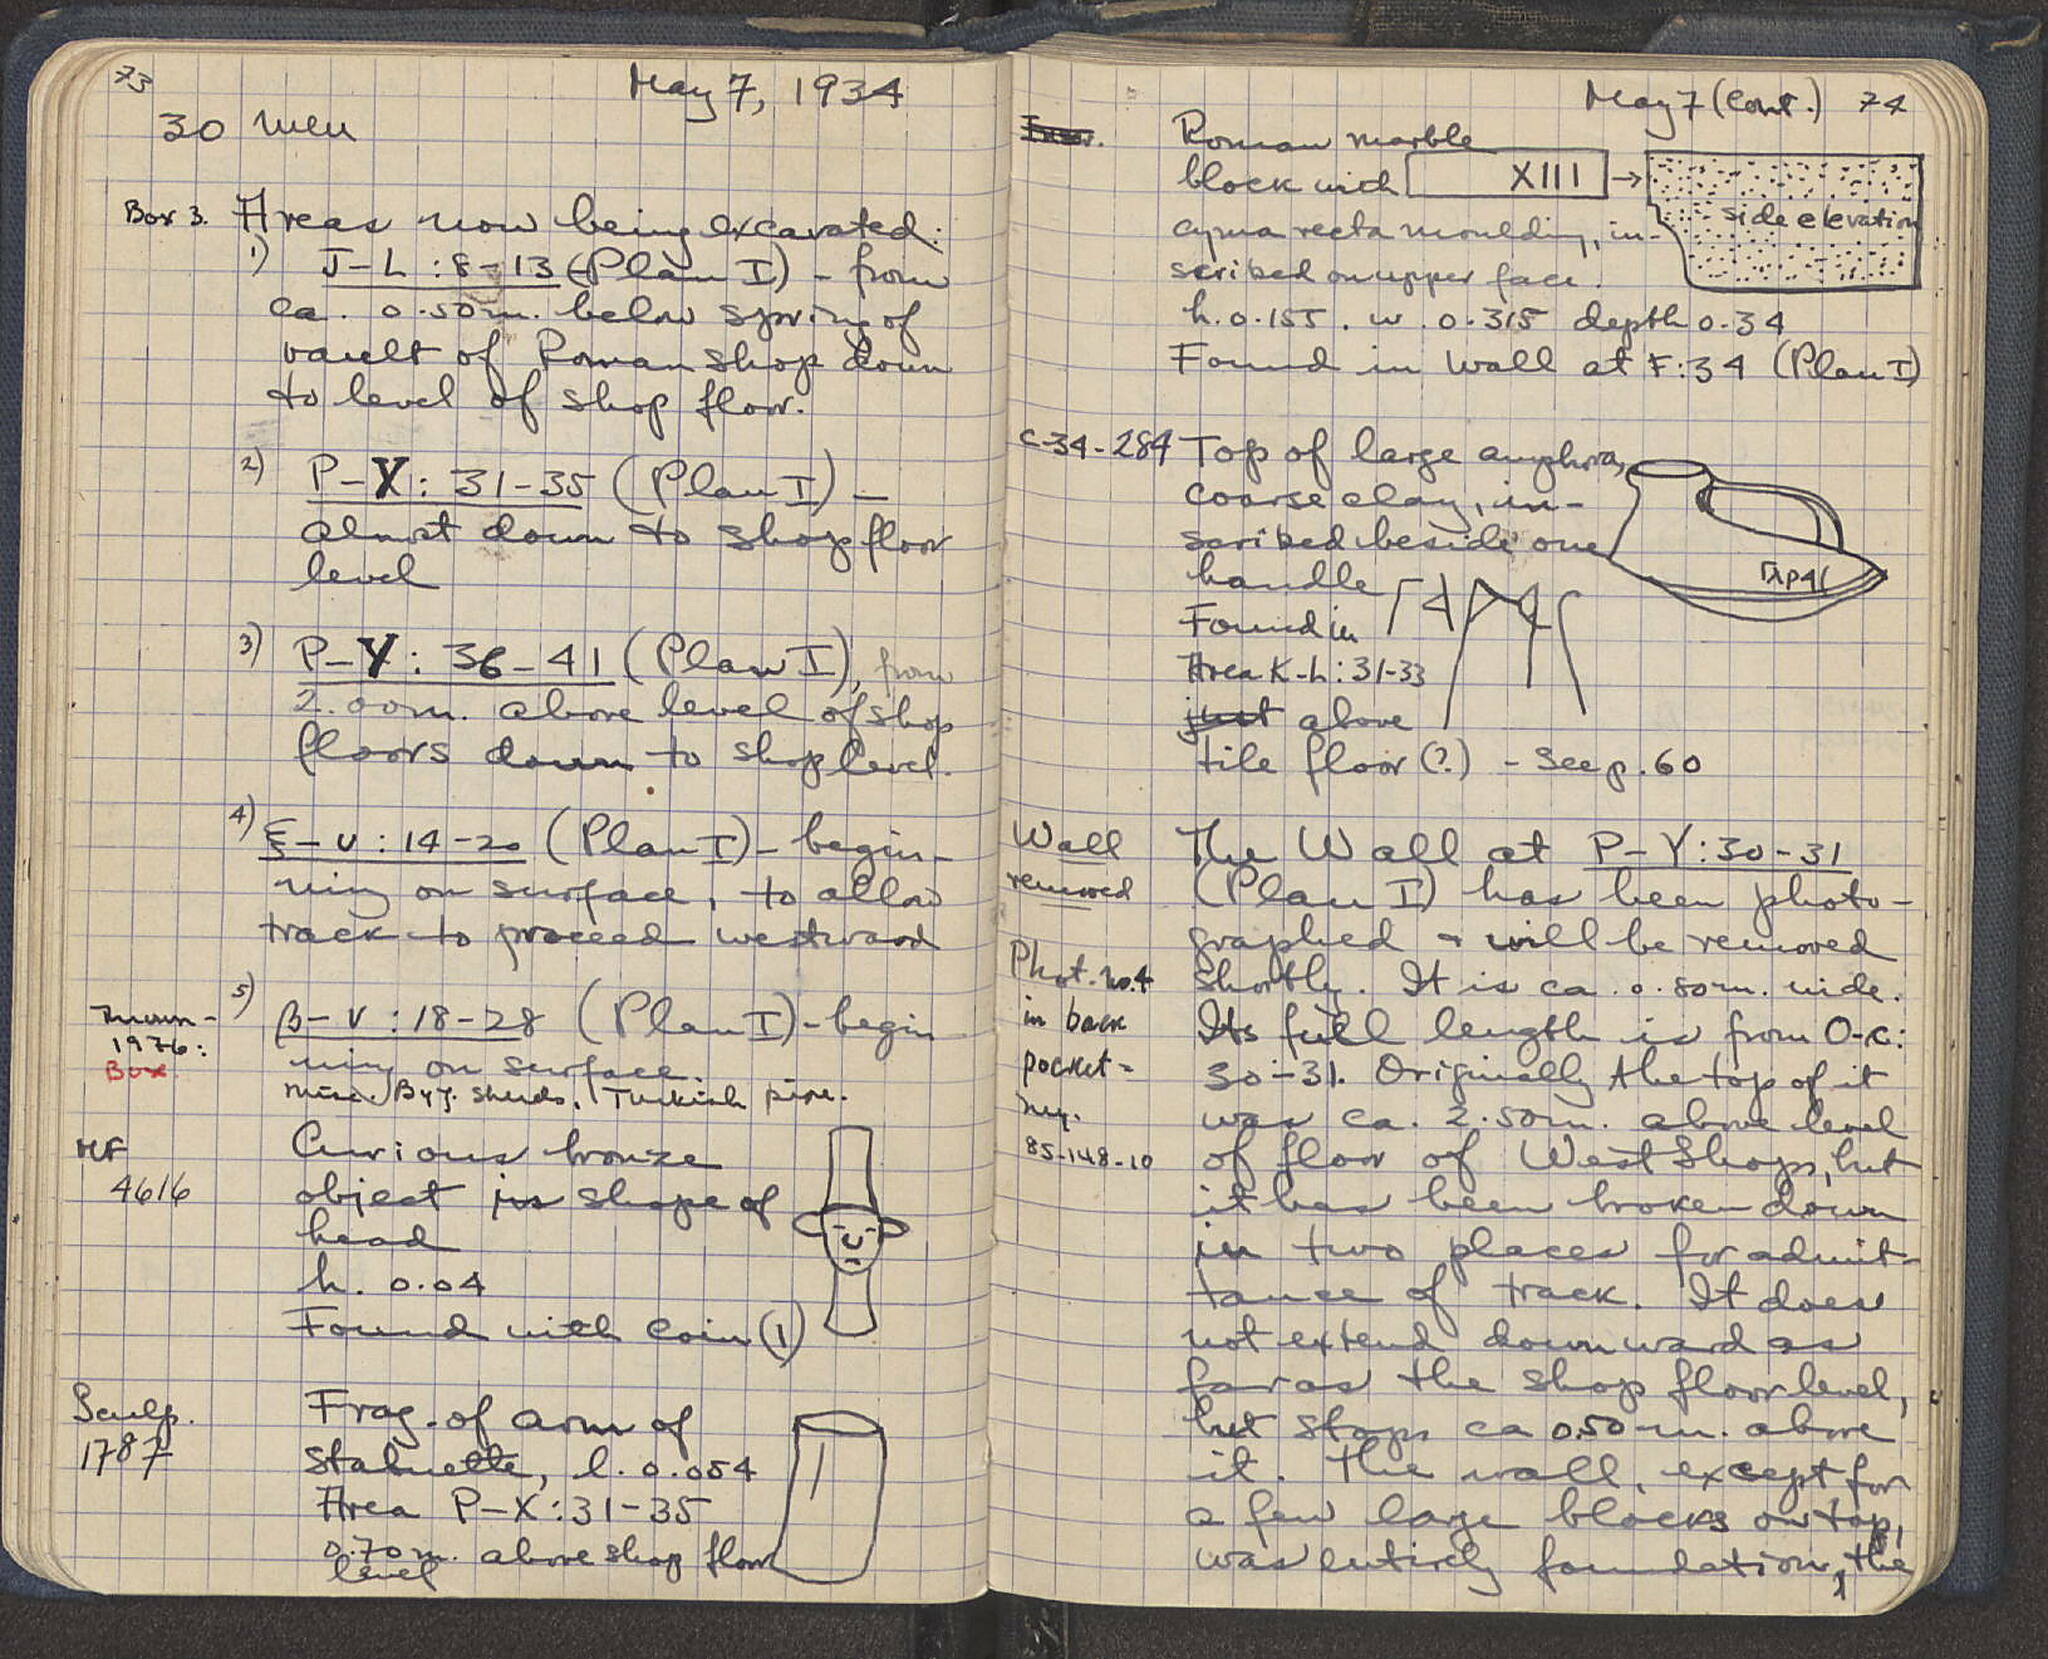 73
May 7, 1934
30 men
Box 3. Areas now being excavated:
1) J-L : 8-13 (Plan I) - from
ca. 0.50m. below spring of
vault of Roman shop down
to level of shop floor.
2) P-X : 31-35 (Plan I) -
almost down to shop floor
level
3) P-Y : 36-41 (Plan I), from
2.00m. above level of shop
floors down to shop level.
4) ξ-υ : 14-20 (Plan I) - begin-
ning on surface, to allow
track to proceed westward
5) β-υ : 18-28 (Plan I) - begin
ning on surface.
Thrown -
1976:
Box
misc. Byz. sherds, Turkish pipe.
MF
4616
Curious bronze
object in shape of
head
h. 0.04
Found with Coin (1)
Sculp.
1787
Frag. of arm of
statuette, l. 0.054
Area P-X : 31-35
0.70m. above shop floor
level
May 7 (Cont.) 74
Inscr. Roman marble
block with XIII → side elevation
cyma recta moulding, in-
scribed on upper face.
h. 0.155. w. 0.315 depth 0.34
Found in Wall at F:34 (Plan I)
C-34-284 Top of large amphora,
coarse clay, in-
scribed beside one
handle
Found in
Area K-L : 31-33
just above
tile floor (?) - See p. 60
Wall
removed
The Wall at P-Y : 30-31
(Plan I) has been photo-
graphed & will be removed
shortly. It is ca. 0.80m. wide.
Phot. no. 4
in back
pocket =
neg.
85-148-10
Its full length is from O-α:
30-31. Originally the top of it
was ca. 2.50m. above level
of floor of West Shops, but
it has been broken down
in two places for admit-
tance of track. It does
not extend downward as
far as the shop floor level,
but stops ca 0.50 m. above
it. The wall, except for
a few large blocks on top,
was entirely foundation, the